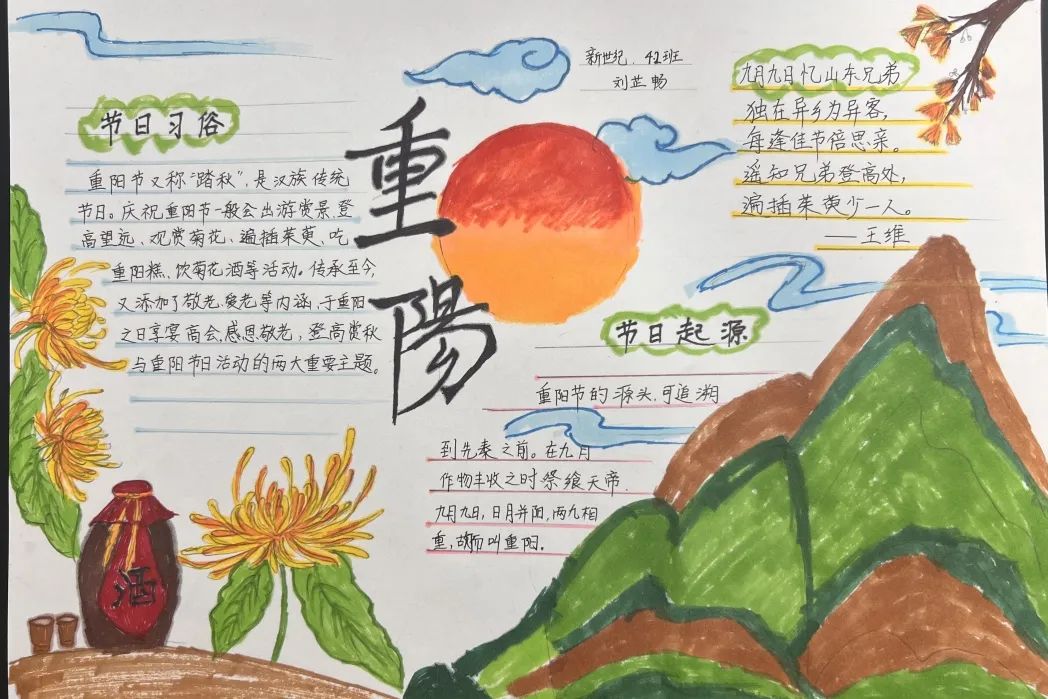 新世纪. 42班
刘芷畅
重陽
节日习俗
重阳节又称"踏秋",是汉族传统
节日。庆祝重阳节一般会出游赏景、登
高望远、观赏菊花、遍插茱萸、吃
重阳糕、饮菊花酒等活动。传承至今,
又添加了敬老、爱老等内涵,于重阳
之日享宴高会,感恩敬老,登高赏秋
与重阳节日活动的两大重要主题。
九月九日忆山东兄弟
独在异乡为异客,
每逢佳节倍思亲。
遥知兄弟登高处,
遍插茱萸少一人。
——王维
节日起源
重阳节的源头,可追溯
到先秦之前。在九月
作物丰收之时祭飨天帝.
九月九日,日月并阳,两九相
重,故而叫重阳。
酒